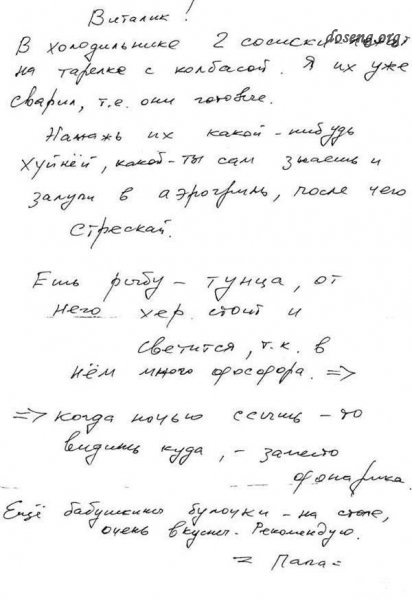 Виталик!
doseng.org
В холодильнике 2 сосиски лежат
на тарелке с колбасой. Я их уже
сварил, т.е. они готовые.
Намажь их какой-нибудь
хуйнёй, какой-ты сам знаешь и
залупи в аэрогриль, после чего
стрескай.
Ешь рыбу - тунца, от
него хер стоит и
светится, т.к. в
нём много фосфора. =>
=> когда ночью ссышь - то
видишь куда, - заместо
фонарика.
Ещё бабушкины булочки - на столе,
очень вкусные. Рекомендую.
= Папа =